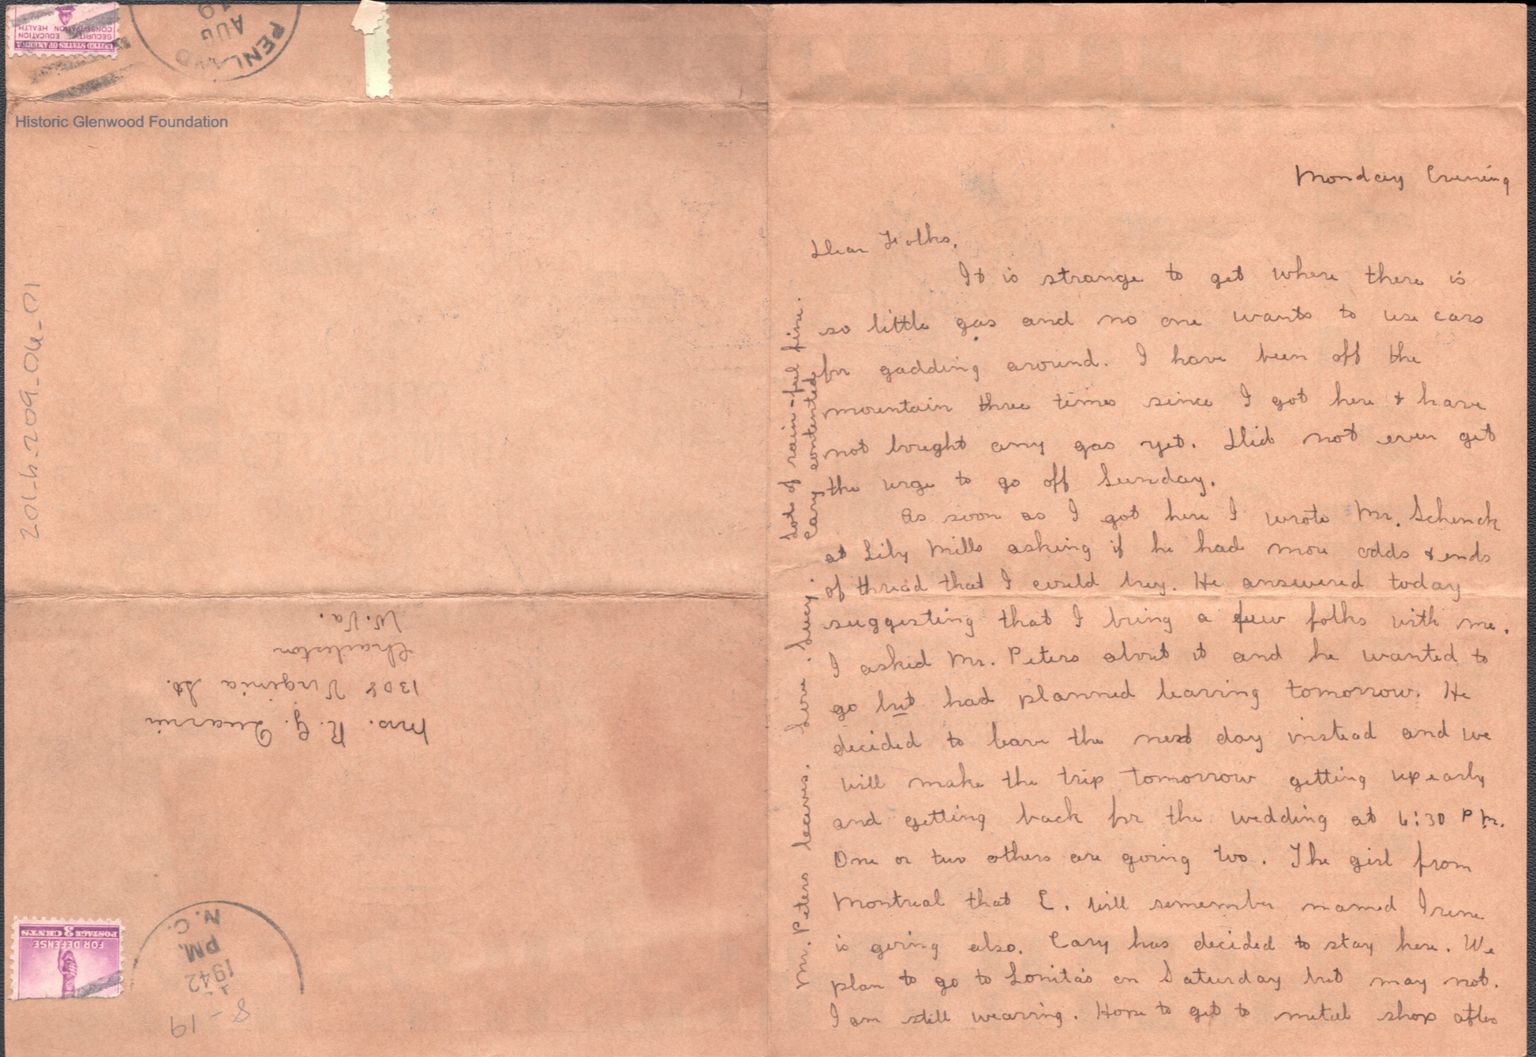 UNITED STATES OF AMERICA
SECURITY EDUCATION
CONSERVATION HEALTH
PENLAND
AUG
19
Historic Glenwood Foundation
201-h-209-04-01
Mrs. R. G. Quarrier
1308 Virginia St.
Charleston
W. Va.
FOR DEFENSE
POSTAGE 3 CENTS
1942
PM
N.C.
8-19
Monday Evening
Dear Folks,
It is strange to get where there is
so little gas and no one wants to use cars
for gadding around. I have been off the
mountain three times since I got here & have
not bought any gas yet. Did not even get
the urge to go off Sunday.
As soon as I got here I wrote Mr. Schenck
at Lily Mills asking if he had more odds & ends
of thread that I could buy. He answered today
suggesting that I bring a few folks with me.
I asked Mr. Peters about it and he wanted to
go but had planned leaving tomorrow. He
decided to leave the next day instead and we
will make the trip tomorrow getting up early
and getting back for the wedding at 6:30 P.M.
One or two others are going too. The girl from
Montreal that E. will remember named Irene
is going also. Cary has decided to stay here. We
plan to go to Lonita's on Saturday but may not.
I am still weaving. Hope to get to metal shop after
Mr. Peters leaves. Love. Lucy.
Lots of rain - feel fine.
Cary contented.